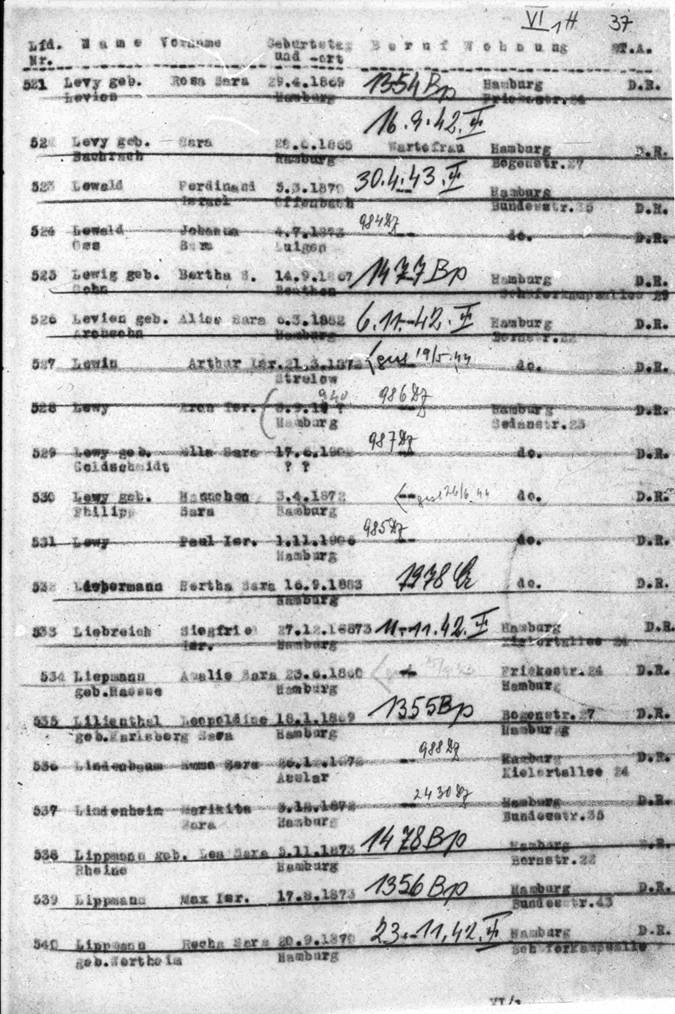 VI 1 H 37
Lfd. Name Vorname Geburtstag Beruf Wohnung ST.A.
Nr. und -ort
521 Levy geb. Rosa Sara 29.4.1869 1354 Bp Hamburg D.R.
Levien Hamburg Frickestr.24
16.9.42.
Levy geb. Sara Wartefrau Hamburg D.R.
Bachrach Hamburg Bogenstr.27
523 Lewald Ferdinand 3.3.1870 30.4.43. Hamburg
Israel Offenbach Bundesstr.35 D.R.
524 Lewald Johanna 4.7.1873 984 -- do. D.R.
Sara
525 Lewig geb. Bertha S. 14.9.1867 1477 Bp Hamburg D.R.
Cohn Beuthen Schäferkampsallee 29
526 Levien geb. Alice Sara 6.3.1882 6.11.42. Hamburg D.R.
Aronsohn Hamburg Bornstr.22
527 Lewin Arthur Isr. 21.3.1872 19/5.44 do. D.R.
Strelow
528 Lewy Aron Isr. 986 -- Hamburg D.R.
Hamburg Sedanstr.23
529 Lewy geb. Ella Sara 987 -- do. D.R.
Goldschmidt ? ?
530 Lewy geb. Hannchen 3.4.1872 -- 26/6.44 do. D.R.
Philipp Sara Hamburg
531 Lewy Paul Isr. 1.11.1906 985 -- do. D.R.
Hamburg
532 Liebermann Hertha Sara 16.9.1883 1978 do. D.R.
Hamburg
533 Liebreich Siegfried 27.12.1873 11.11.42. Hamburg D.R.
Isr. Hamburg Kielertallee 24
534 Liepmann Amalie Sara 23.6.1860 Frickestr.24 D.R.
geb.Haesse Hamburg Hamburg
535 Lilienthal Leopoldine 18.1.1869 1355 Bp Bogenstr.27 D.R.
geb.Karlsberg Sara Hamburg Hamburg
536 Lindenbaum Emma Sara 988 -- Hamburg D.R.
Asslar Kielertallee 24
537 Lindenheim Marikita 3.12.1872 2430 -- Hamburg D.R.
Sara Hamburg Bundesstr.35
538 Lippmann geb. Lea Sara 5.11.1873 1478 Bp Hamburg D.R.
Rheine Hamburg Bornstr.22
539 Lippmann Max Isr. 17.8.1873 1356 Bp Hamburg D.R.
Hamburg Bundesstr.43
540 Lippmann Recha Sara 20.9.1870 23.11.42. Hamburg D.R.
geb.Wertheim Hamburg